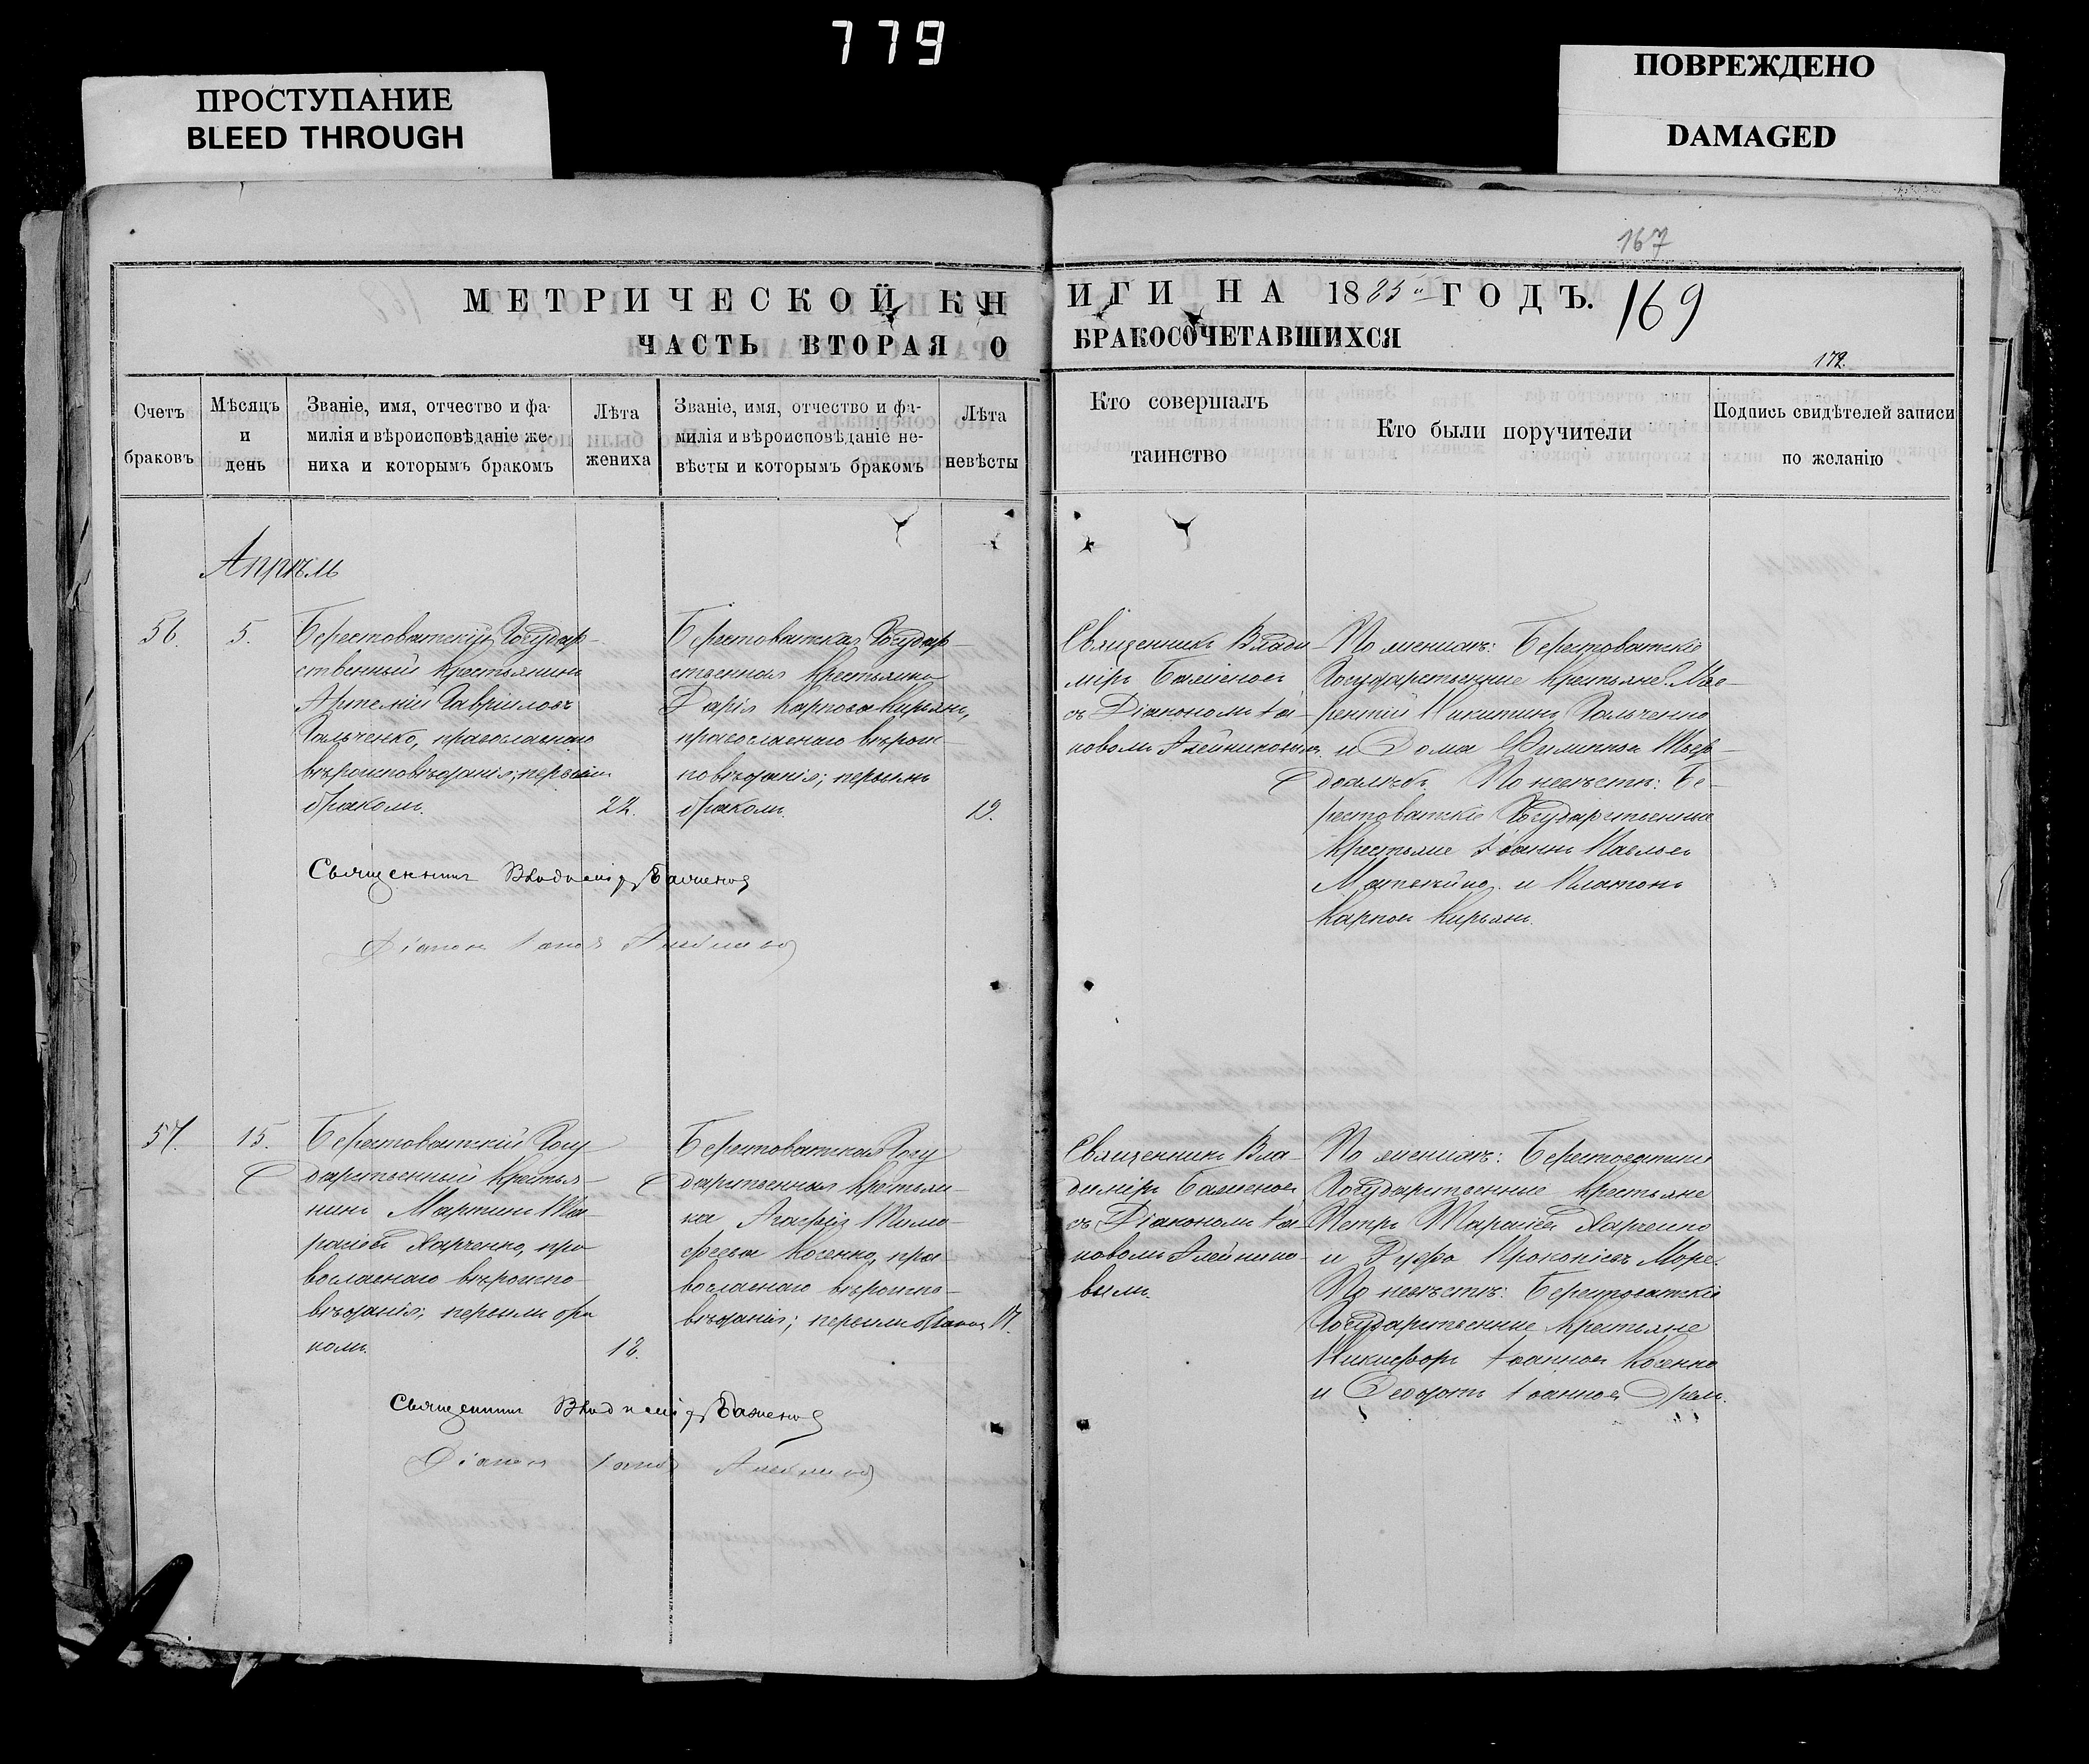 779
ПРОСТУПАНИЕ
BLEED THROUGH
ПОВРЕЖДЕНО
DAMAGED
167
МЕТРИЧЕСКОЙ КН
ИГИ НА 1885й ГОДЪ.
169
ЧАСТЬ ВТОРАЯ О
БРАКОСОЧЕТАВШИХСЯ
172.
Счетъ
браковъ
Мѣсяцъ
и
день
Званіе, имя, отчество и фа-
милія и вѣроисповѣданіе же-
ниха и которымъ бракомъ
Лѣта
жениха
Званіе, имя, отчество и фа-
милія и вѣроисповѣданіе не-
вѣсты и которымъ бракомъ
Лѣта
невѣсты
Кто совершалъ
таинство
Кто были поручители
Подпись свидѣтелей записи
по желанію
Апрѣль
56.
5.
Берестоватскій Государ-
ственный крестьянинъ
Артемій Гавріиловъ
Гальченко, православнаго
вѣроисповѣданія; первымъ
бракомъ.
22.
Берестоватская Государ-
ственная крестьянка
Дарія Карпова Кирьянъ,
православнаго вѣроис-
повѣданія; первымъ
бракомъ.
19.
Священникъ Влади-
міръ Баженовъ
съ Діакономъ Іа-
ковомъ Алейниковымъ.
По женихѣ: Берестоватскіе
Государственные крестьяне: Лав-
рентій Никитинъ Гальченко
и Ѳома Филиповъ
По невѣстѣ: Бе-
рестоватскіе Государственные
крестьяне Іоаннъ Павловъ
и Платонъ
Карповъ Кирьянъ.
Священникъ Владиміръ Баженов
Діаконъ Іаковъ Алейников
57.
15.
Берестоватскій Госу-
дарственный крестья-
нинъ Мартинъ Та-
расіевъ Харченко, пра-
вославнаго вѣроиспо-
вѣданія; первымъ бра-
комъ.
18.
Берестоватская Госу-
дарственная крестьян-
ка Агафія Тимо-
феева Косенко, пра-
вославнаго вѣроиспо-
вѣданія; первымъ бракомъ
17.
Священникъ Вла-
диміръ Баженовъ
съ Діакономъ Іа-
ковомъ Алейнико-
вымъ.
По женихѣ: Берестоватскіе
Государственные крестьяне
Петръ Тарасіевъ Харченко
и Прокопіевъ Море.
По невѣстѣ: Берестоватскіе
Государственные крестьяне
Никифоръ Іоанновъ Косенко
и Іоанновъ
Священникъ Владиміръ Баженов
Діаконъ Іаковъ Алейников